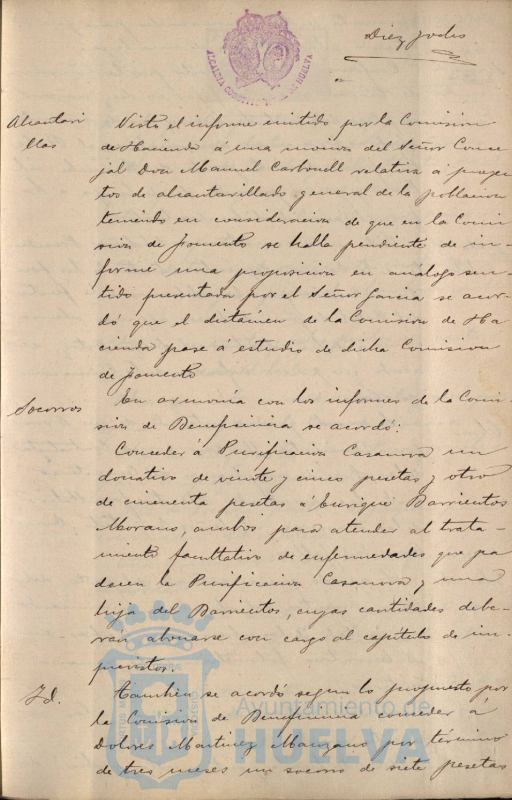 Diez y ocho
ALCALDIA CONSTITUCIONAL DE HUELVA
Alcantari
llas
Visto el informe emitido por la Comision
de Hacienda á una mocion del Señor Conce
jal Don Manuel Carbonell relativa á proyec
tos de alcantarillado general de la poblacion
teniendo en consideracion de que en la Comi
sion de Fomento se halla pendiente de in-
forme una proposicion en análogo sen-
tido presentada por el Señor Garcia se acor-
dó que el dictámen de la Comision de Ha
cienda pase á estudio de dicha Comision
de Fomento
Socorros
En armonía con los informes de la Comi-
sion de Beneficencia se acordó:
Conceder á Purificacion Casanova un
donativo de veinte y cinco pesetas y otro
de cincuenta pesetas á Enrique Barrientos
Morano, ambos para atender al trata-
miento facultativo de enfermedades que pa
decen la Purificacion Casanova y una
hija del Barrientos, cuyas cantidades debe-
ran abonarse con cargo al capítulo de im-
previstos.
Id.
Tambien se acordó segun lo propuesto por
la Comision de Beneficencia conceder á
Dolores Martinez Manzano por término
de tres meses un socorro de siete pesetas
Ayuntamiento de
HUELVA